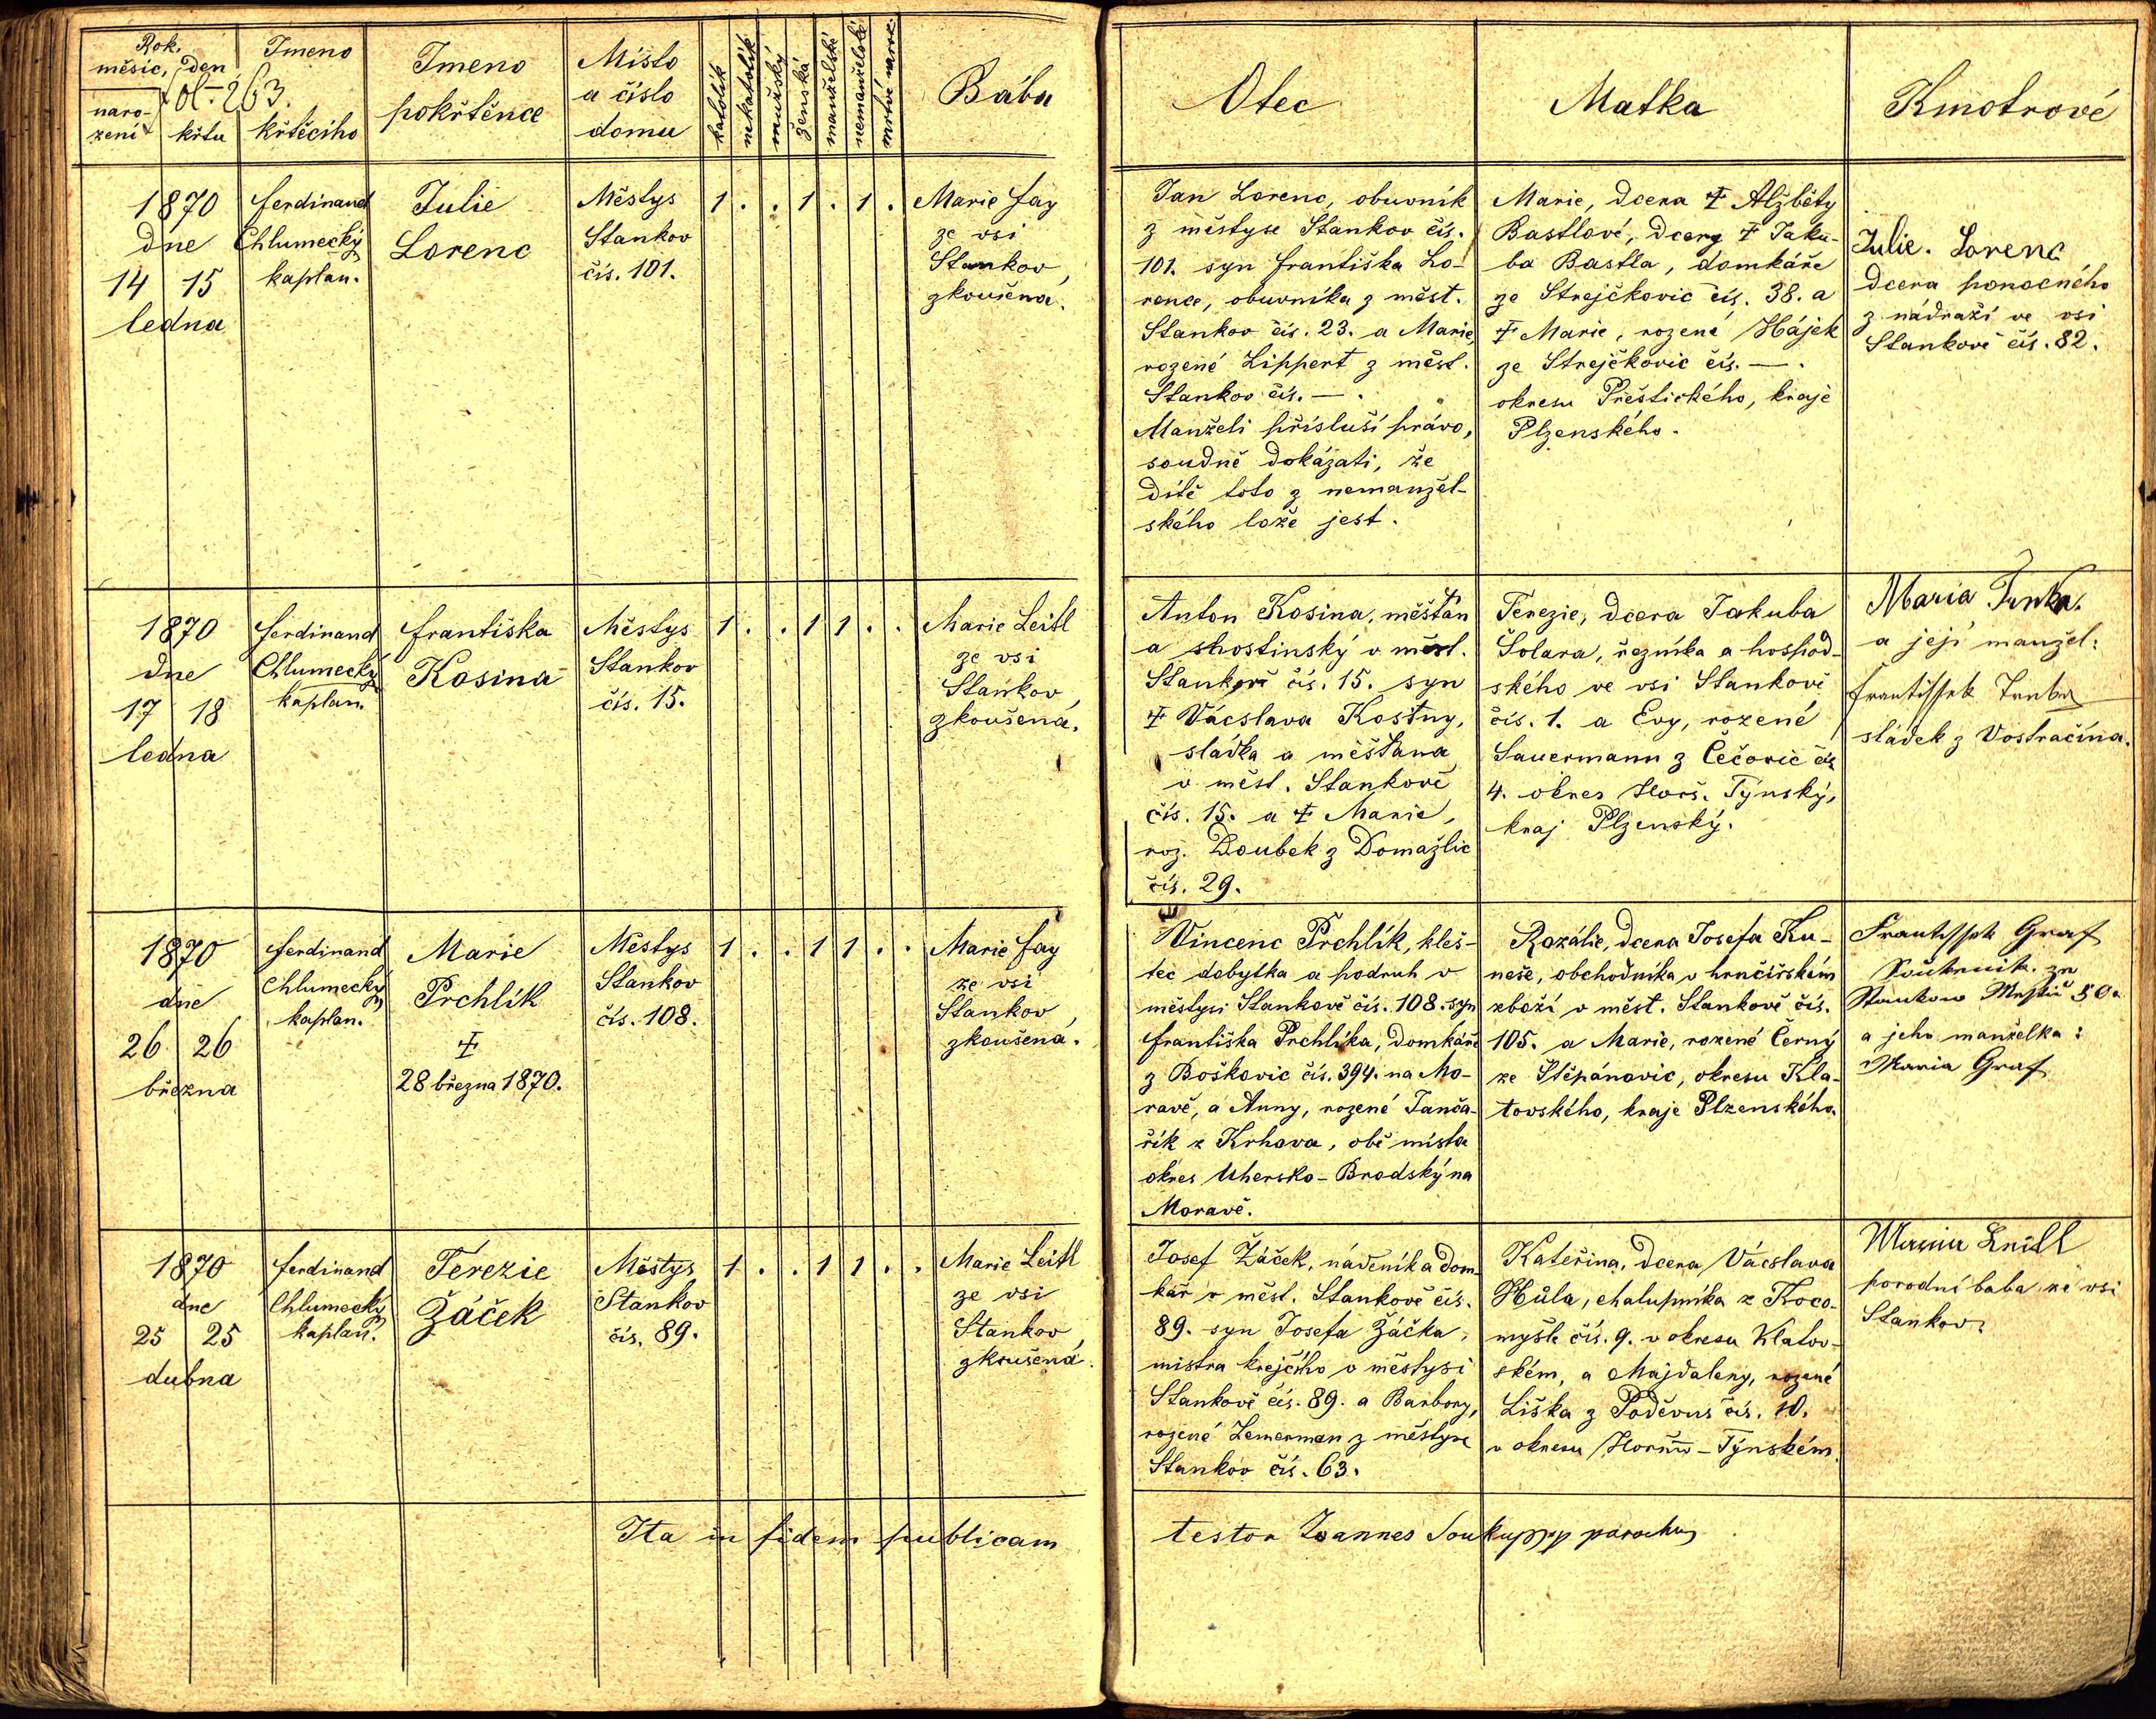 Rok,
měsíc, den
fol. 263.
naro-
zení
křtu
Jmeno
křtěcího
Jmeno
pokřtěnce
Místo
a číslo
domu
katolík
nekatolík
mužský
ženská
manželské
nemanželské
mrtvě naroz.
Bába
Otec
Matka
Kmotrové
1870
dne
14 15
ledna
Ferdinand
Chlumecký
kaplan.
Julie
Lorenc
Městys
Stankov
čís. 101.
1 . . 1 . 1 .
Marie Fay
ze vsi
Stankov,
zkoušená.
Jan Lorenc, obuvník
z městyse Stankov čís.
101. syn Františka Lo-
rence, obuvníka z měst.
Stankov čís. 23. a Marie,
rozené Lippert z měst.
Stankov čís. — .
Manželi přísluší právo,
soudně dokázati, že
dítě toto z nemanžel-
ského lože jest.
Marie, dcera † Alžběty
Bastlové, dcery † Jaku-
ba Bastla, domkáře
ze Strejčkovic čís. 38. a
† Marie, rozené Hájek
ze Strejčkovic čís. — .
okresu Přeštického, kraje
Plzenského.
Julie. Lorenc
dcera ponocného
z nádraží ve vsi
Stankově čís. 82.
1870
dne
17 18
ledna
Ferdinand
Chlumecký
kaplan.
Františka
Kosina
Městys
Stankov
čís. 15.
1 . . 1 1 . .
Marie Leitl
ze vsi
Stankov,
zkoušená.
Anton Kosina, měšťan
a hostinský v měst.
Stankově čís. 15. syn
† Vácslava Kosiny,
sládka a měšťana
v měst. Stankově
čís. 15. a † Marie,
roz. Doubek z Domažlic
čís. 29.
Terezie, dcera Jakuba
Šolara, řezníka a hospod-
ského ve vsi Stankově
čís. 1. a Evy, rozené
Sauermann z Čečovic čís.
4. okres Horš. Týnský,
kraj Plzenský.
Maria
a její manžel:
Frantissek
sládek z Vostračína.
1870
dne
26 26
března
Ferdinand
Chlumecký
kaplan.
Marie
Prchlík
†
28 března 1870.
Městys
Stankov
čís. 108.
1 . . 1 1 . .
Marie Fay
ze vsi
Stankov,
zkoušená.
Vincenc Prchlík, kleš-
tec dobytka a podruh v
městysi Stankově čís. 108. syn
Františka Prchlíka, domkáře
z Boškovic čís. 394. na Mo-
ravě, a Anny, rozené Janča-
řík z Krhova, obě místa
okres Uhersko-Brodský na
Moravě.
Rozálie, dcera Josefa Ku-
neše, obchodníka v hrnčířském
zboží v měst. Stankově čís.
105. a Marie, rozené Černý
ze Štěpánovic, okresu Kla-
tovského, kraje Plzenského.
Frantissek Graf
Stankow
a jeho manželka:
Maria Graf
1870
dne
25 25
dubna
Ferdinand
Chlumecký
kaplan.
Terezie
Žáček
Městys
Stankov
čís. 89.
1 . . 1 1 . .
Marie Leitl
ze vsi
Stankov,
zkoušená.
Josef Žáček, nádeník a dom-
kář v měst. Stankově čís.
89. syn Josefa Žáčka,
mistra krejčího v městysi
Stankově čís. 89. a Barbory,
rozené Zemerman z městyse
Stankov čís. 63.
Kateřina, dcera Vácslava
Hůla, chalupníka z Koco-
myšle čís. 9. v okresu Klatov-
ském, a Majdaleny, rozené
Liška z Poděvus čís. 10.
v okresu Horšův-Týnském.
porodní baba ze vsi
Stankov.
Ita in fidem publicam
testor Joannes Soukup parochus